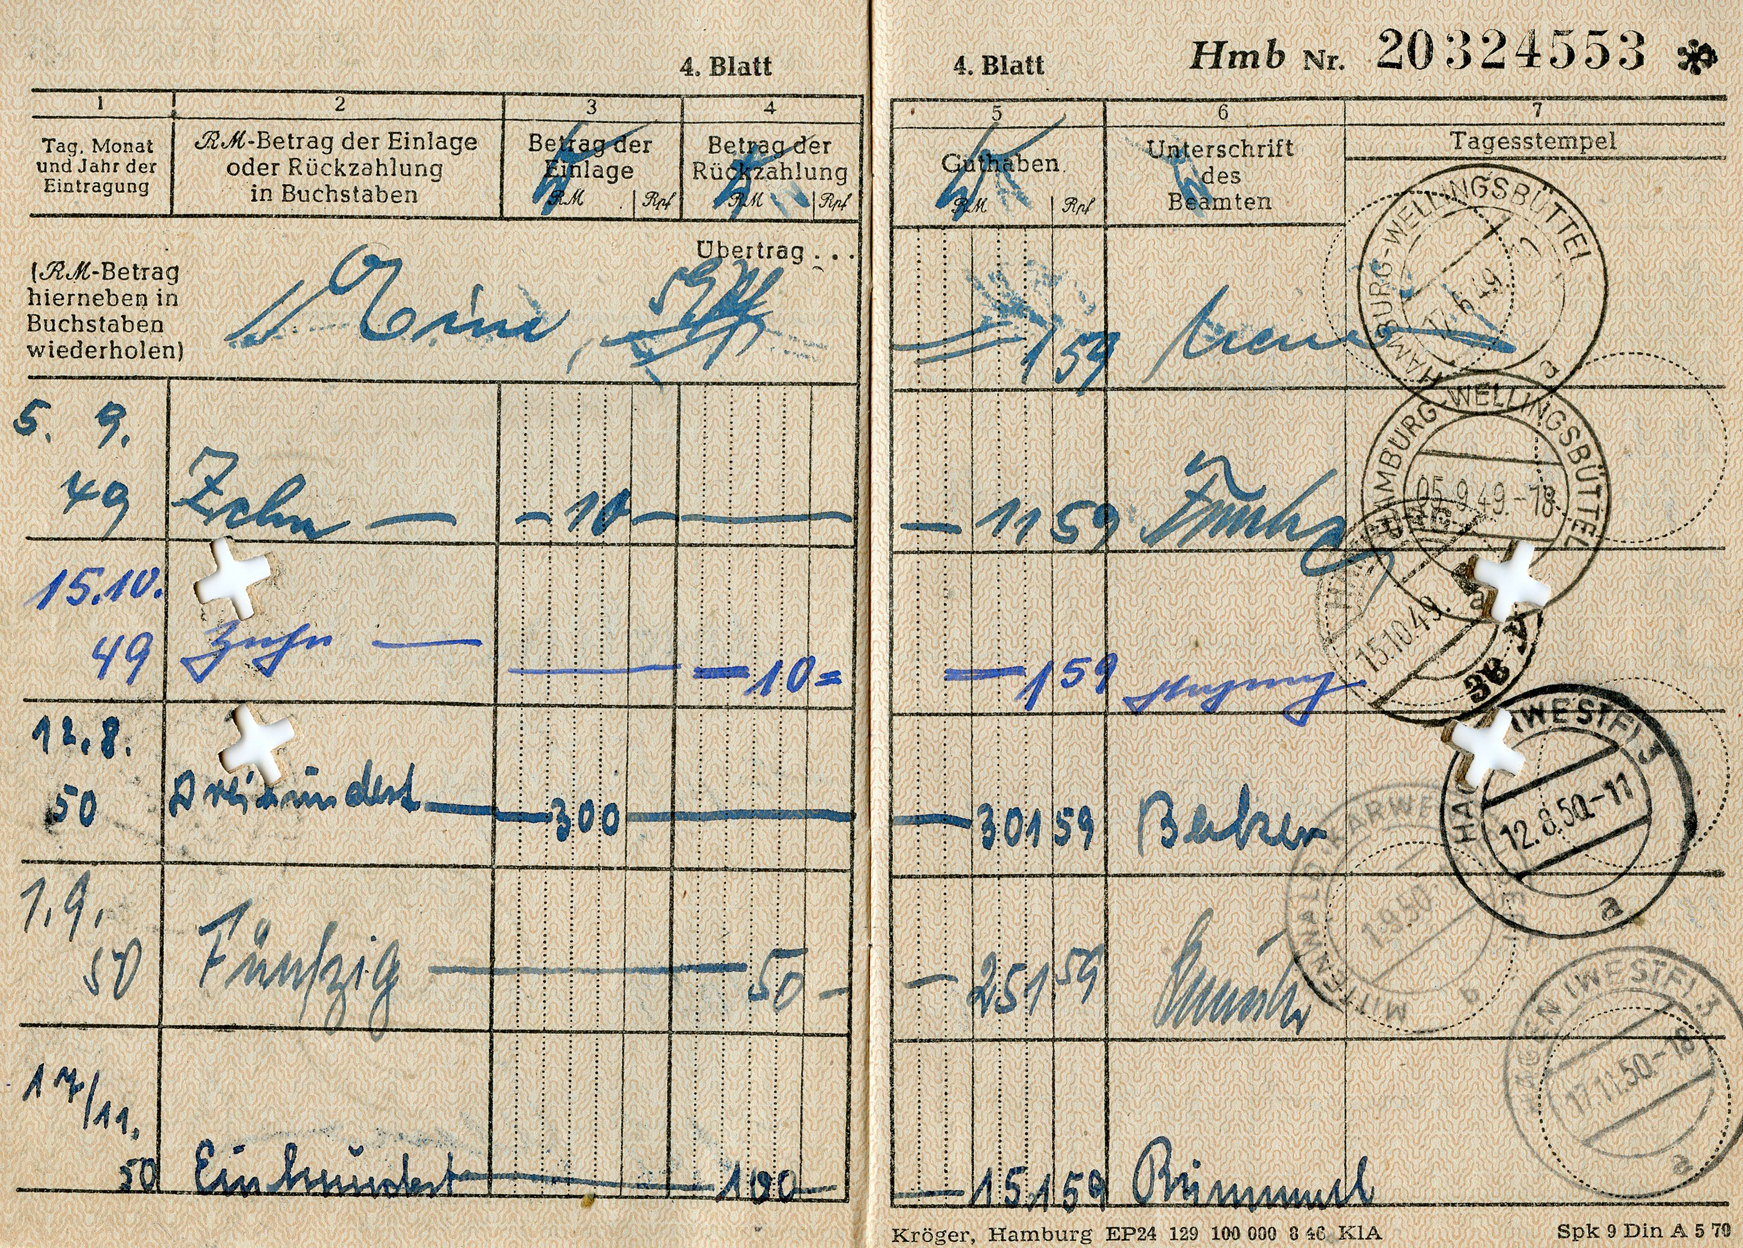 4. Blatt
1 2 3 4
Tag, Monat
und Jahr der
Eintragung
RM-Betrag der Einlage
oder Rückzahlung
in Buchstaben
Betrag der
Einlage
RM Rpf
Betrag der
Rückzahlung
RM Rpf
Übertrag . . .
(RM-Betrag
hierneben in
Buchstaben
wiederholen)
Eine, 59
5. 9.
49 Zehn — — 10 —
15.10.
49 Zehn — — 10 =
12.8.
50 Dreihundert — 300 —
1.9.
50 Fünfzig — 50 —
17/11.
50 Einhundert — 100 —
4. Blatt Hmb Nr. 20324553
5 6 7
Guthaben
RM Rpf
Unterschrift
des
Beamten
Tagesstempel
1 59
— 11 59
— 1 59
— 301 59
— 251 59
— 151 59
HAMBURG-WELLINGSBÜTTEL
6.49
HAMBURG-WELLINGSBÜTTEL
05.9.49.-18
15.10.49.
HAGEN (WESTF) 3
12.8.50.-11
a
MITTENWALD-KARWENDEL
1.9.50
b
HAGEN (WESTF) 3
17.11.50.-18
a
Kröger, Hamburg EP24 129 100 000 8 46 KIA
Spk 9 Din A 5 70